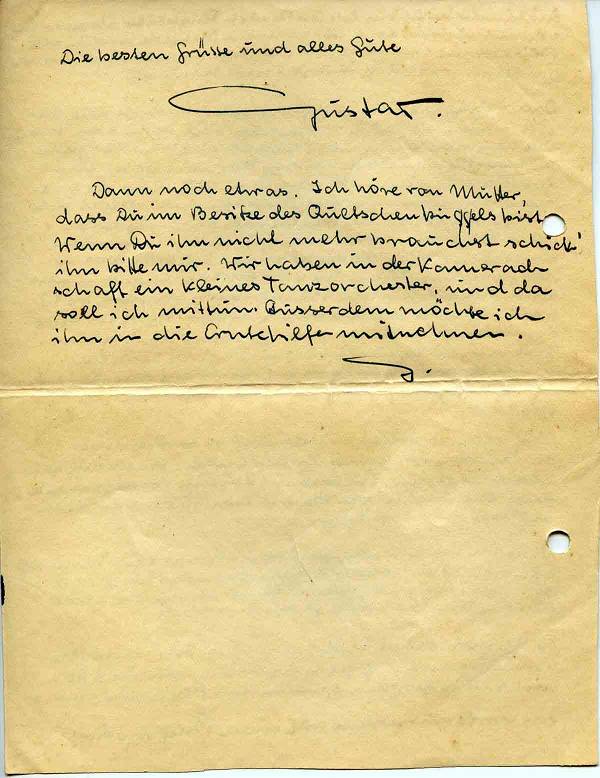 Die besten Grüsse und alles Gute
Gustav.
Dann noch etwas. Ich höre von Mutter,
dass Du im Besitze des Quetschenbüggels bist.
Wenn Du ihn nicht mehr brauchst schick'
ihn bitte mir. Wir haben in der Kamerad-
schaft ein kleines Tanzorchester, und da
soll ich mittun. Ausserdem möchte ich
ihn in die Erntehilfe mitnehmen.
G.